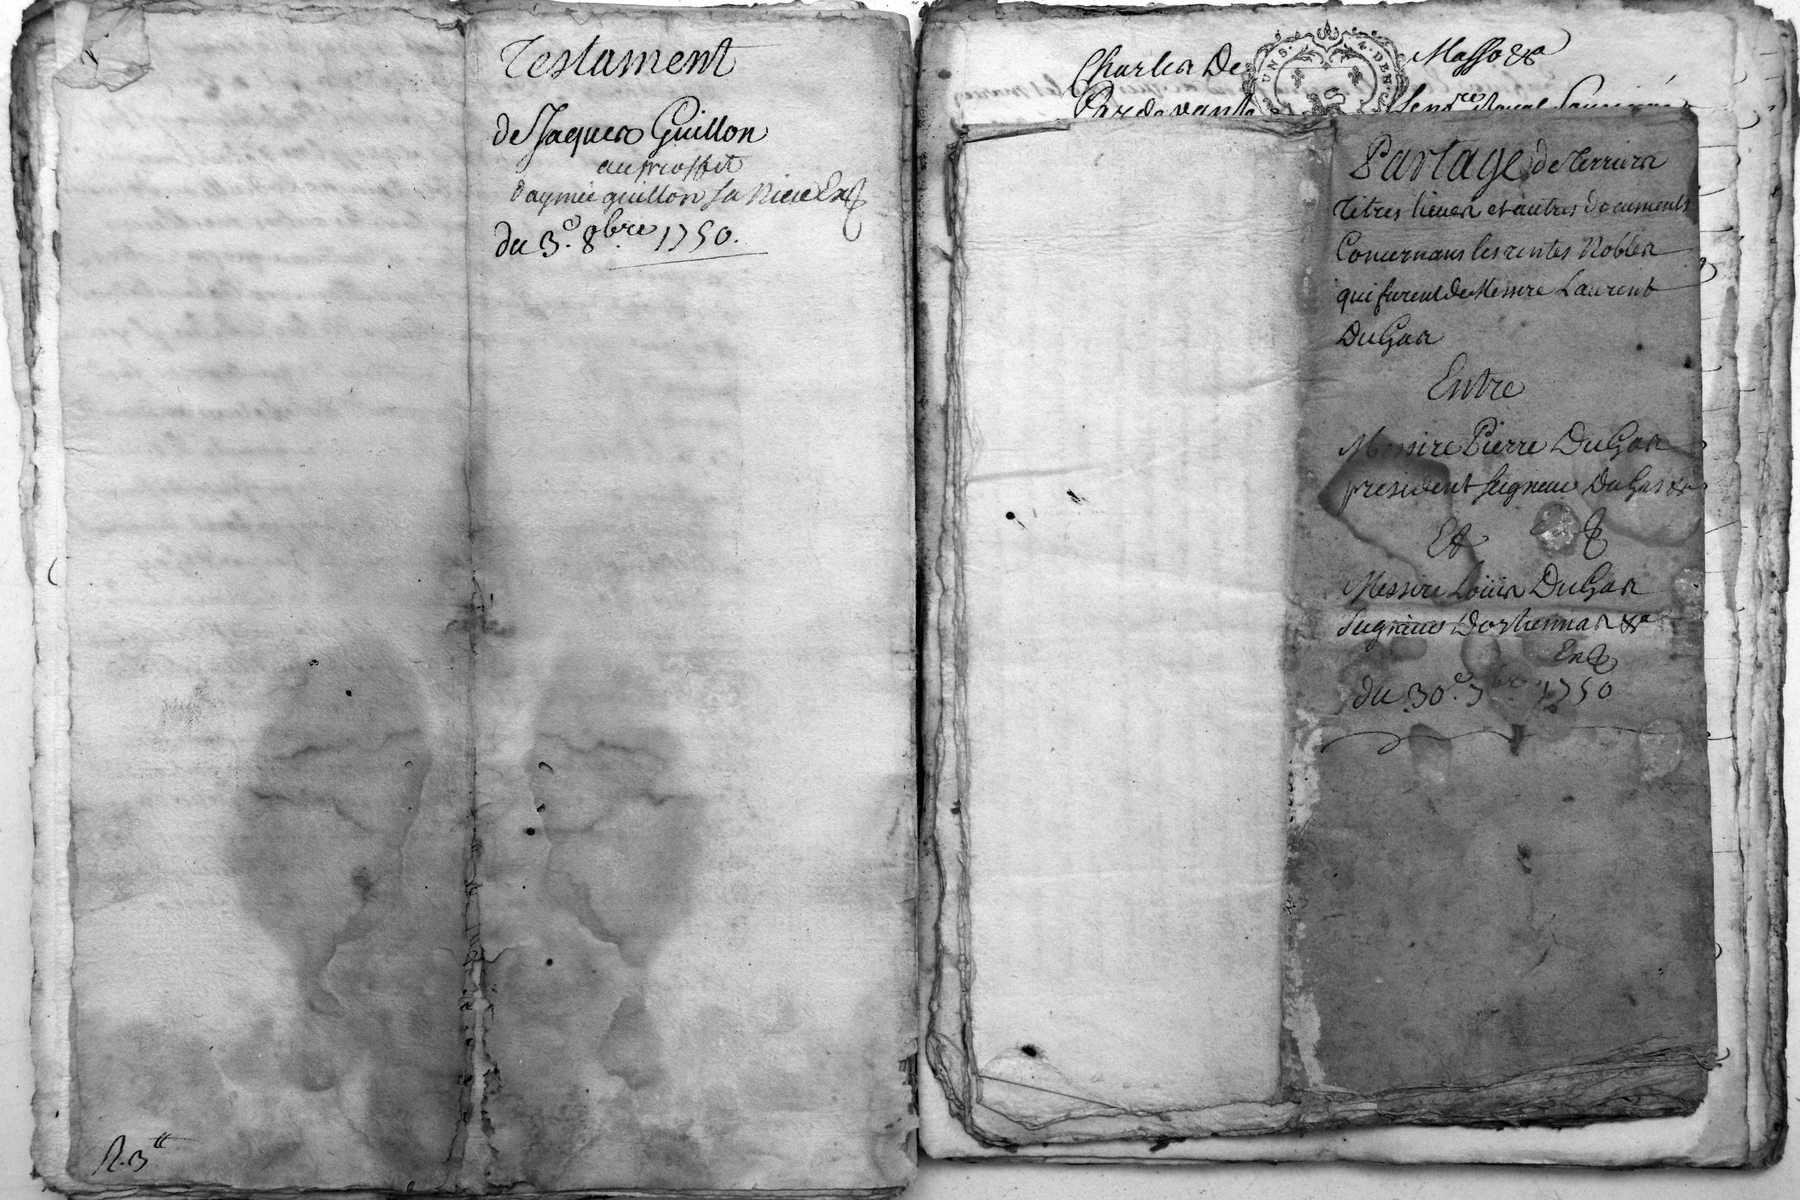 Testament
de Jaques Guillon
au proffit
d'aymée guillon sa Niece Ex
du 3.e 8bre 1750.
R. 3tt
Charles De Masso &a
UNS. 2. DEN
Pardevant Royal
Partage de Terriers
titres lieues et autres documents
Concernans les rentes Nobles
qui furent de Messire Laurent
DuGas
Entre
Messire Pierre DuGas
president seigneur DuGas &a
Et
Messire Loüis DuGas
seigneur &a
Ex
du 30.e 7bre 1750